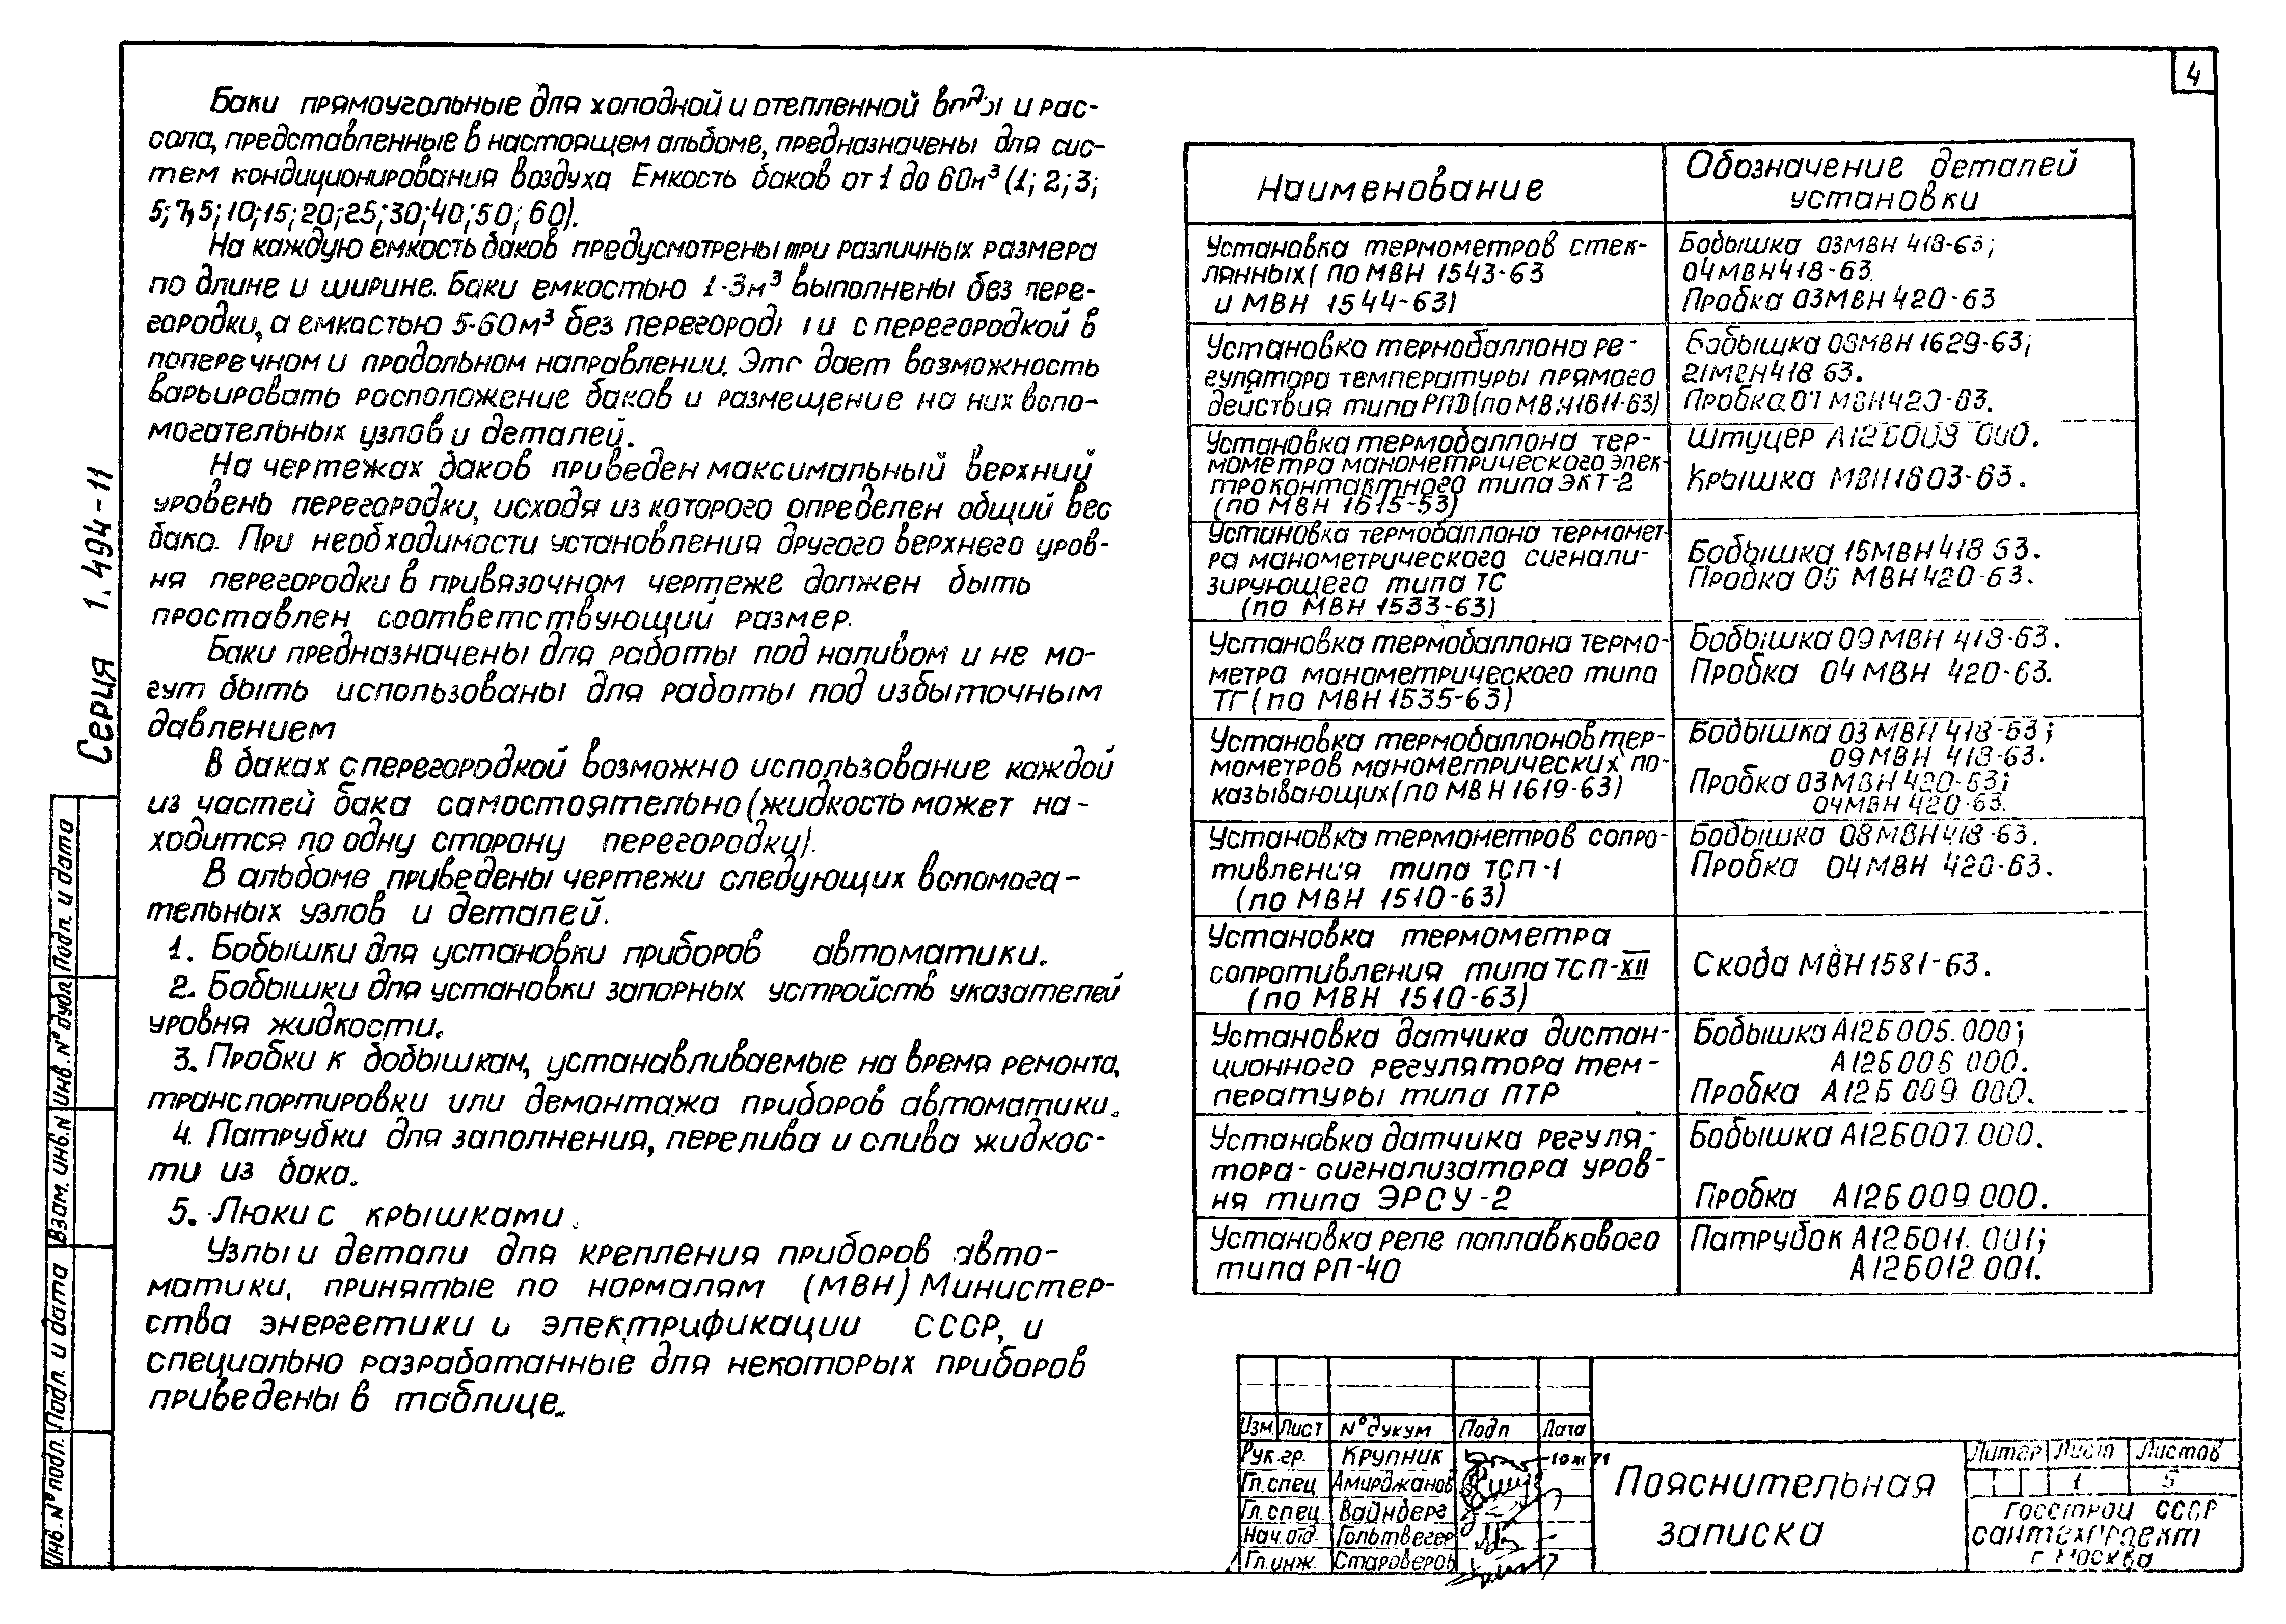 4
Баки прямоугольные для холодной и отепленной воды и рас-
сола, представленные в настоящем альбоме, предназначены для сис-
тем кондиционирования воздуха Емкость баков от 1 до 60м³ (1; 2; 3;
5; 7,5; 10; 15; 20; 25; 30; 40; 50; 60).
На каждую емкость баков предусмотрены три различных размера
по длине и ширине. Баки емкостью 1-3м³ выполнены без пере-
городки, а емкостью 5-60м³ без перегородки и с перегородкой в
поперечном и продольном направлении. Это дает возможность
варьировать расположение баков и размещение на них вспо-
могательных узлов и деталей.
На чертежах баков приведен максимальный верхний
уровень перегородки, исходя из которого определен общий вес
бака. При необходимости установления другого верхнего уров-
ня перегородки в привязочном чертеже должен быть
проставлен соответствующий размер.
Баки предназначены для работы под наливом и не мо-
гут быть использованы для работы под избыточным
давлением
В баках с перегородкой возможно использование каждой
из частей бака самостоятельно (жидкость может на-
ходится по одну сторону перегородки).
В альбоме приведены чертежи следующих вспомога-
тельных узлов и деталей.
1. Бобышки для установки приборов автоматики.
2. Бобышки для установки запорных устройств указателей
уровня жидкости.
3. Пробки к бобышкам, устанавливаемые на время ремонта,
транспортировки или демонтажа приборов автоматики.
4. Патрубки для заполнения, перелива и слива жидкос-
ти из бака.
5. Люки с крышками.
Узлы и детали для крепления приборов авто-
матики, принятые по нормалям (МВН) Министер-
ства энергетики и электрификации СССР, и
специально разработанные для некоторых приборов
приведены в таблице.
Наименование
Обозначение деталей
установки
Установка термометров стек-
лянных (по МВН 1543-63
и МВН 1544-63)
Бобышка 03МВН 418-63;
04МВН418-63.
Пробка 03МВН 420-63
Установка термобаллона ре-
гулятора температуры прямого
действия типа РПД (по МВН1611-63)
Бобышка 08МВН 1629-63;
21МВН418 63.
Пробка 07 МВН420-63.
Установка термобаллона тер-
мометра манометрического элек-
троконтактного типа ЭКТ-2
(по МВН 1615-53)
Штуцер А12Б008 000.
Крышка МВН1603-63.
Установка термобаллона термомет-
ра манометрического сигнали-
зирующего типа ТС
(по МВН 1533-63)
Бобышка 15МВН 418 63.
Пробка 05 МВН 420-63.
Установка термобаллона термо-
метра манометрического типа
ТГ (по МВН 1535-63)
Бобышка 09 МВН 418-63.
Пробка 04 МВН 420-63.
Установка термобаллонов тер-
мометров манометрических по-
казывающих (по МВН 1619-63)
Бобышка 03 МВН 418-63;
09 МВН 418-63.
Пробка 03 МВН 420-63;
04МВН 420-63.
Установка термометров сопро-
тивления типа ТСП-1
(по МВН 1510-63)
Бобышка 08МВН 418-63.
Пробка 04МВН 420-63.
Установка термометра
сопротивления типа ТСП-XII
(по МВН 1510-63)
Скода МВН 1581-63.
Установка датчика дистан-
ционного регулятора тем-
пературы типа ПТР
Бобышка А12Б005.000;
А12Б006.000.
Пробка А12Б009.000.
Установка датчика регуля-
тора-сигнализатора уров-
ня типа ЭРСУ-2
Бобышка А12Б007.000.
Пробка А12Б009.000.
Установка реле поплавкового
типа РП-40
Патрубок А12Б011.001;
А12Б012 001.
Серия 1.494-11
Инв. № подл.
Подп. и дата
Взам. инв.N
Инв. № дубл.
Подп. и дата
Изм. Лист № дукум Подп Дата
Рук.гр. Крупник
Гл.спец Амирджанов
Гл.спец. Вайнберг
Нач.отд. Гольтвегер
Гл.инж. Староверов
Пояснительная
записка
Литер Лист Листов
1 5
Госстрой СССР
Сантехпроект
г. Москва